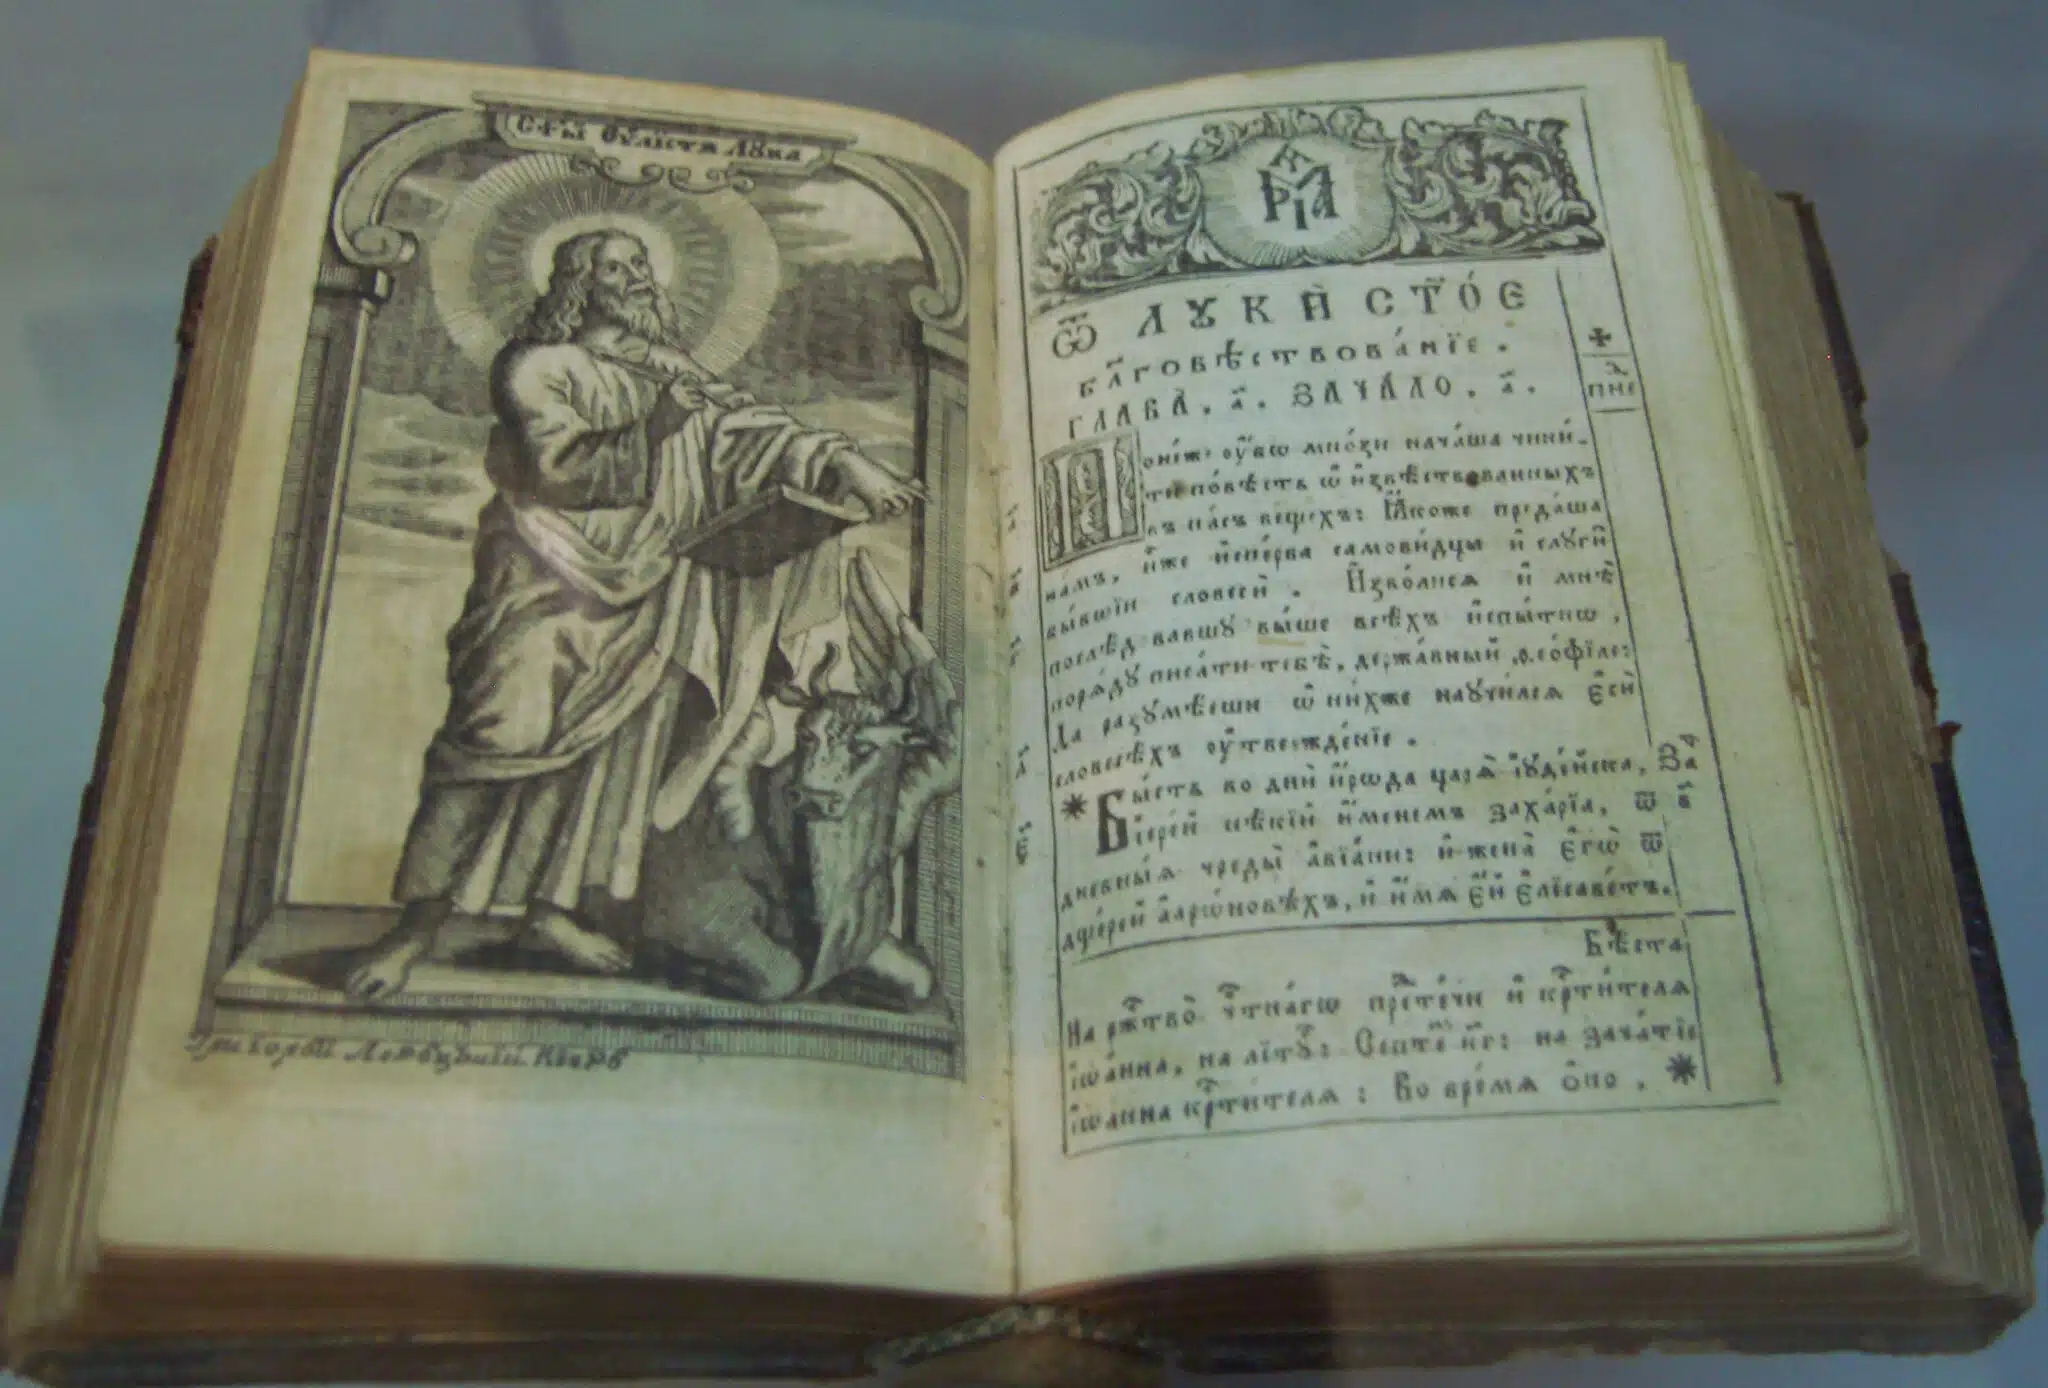 СТ҃ЫЙ ЕѴ҃ЛІСТЪ ЛꙊКА
Григорій Левѣцъкій
МАРІА
Ѿ ЛꙊКѝ СТ҃О́Е
БЛ҃ГОВѢСТВОВА́НЇЕ.
ГЛАВА̀. а҃. ЗАЧА́ЛО. а҃.
Поне́же ᲂу҆́бѡ мно́зи нача́ша чини́-
ти по́вѣсть ѡ҆ и҆звѣ́ствованныхъ
въ на́съ ве́щехъ: ꙗ҆́коже преда́ша
на́мъ, и҆̀же и҆спе́рва самови́дцы и҆ слꙋги̑
бы́вшїи словесѐ. И҆зво́лисѧ и҆ мнѣ̀
послѣ́довавшꙋ вы́ше всѣ̑хъ и҆спы́тнѡ,
порѧ́дꙋ писа́ти тебѣ̀, держа́вный ѳео́фїле:
Да разꙋмѣ́еши ѡ҆ ни́хже наꙋчи́лсѧ є҆сѝ
словесѣ́хъ ᲂу҆твержде́нїе.
✷ Бы́сть во дни̑ и҆́рѡда царѧ̀ і҆ꙋде́йска, За
і҆ере́й нѣ́кїй и҆́менемъ заха́рїа, ѿ в҃
дне́вныѧ чреды̀ а҆вїа́ни: и҆ жена̀ є҆гѡ̀ ѿ
дще́рей а҆арѡ́новѣхъ, и҆ и҆́мѧ є҆́й є҆лїсаве́тъ.
Бѣ́ста
На рж҃тво̀ чт҃на́гѡ прⷣте́чи и҆ кр҃ти́телѧ
і҆ѡа́нна, на лїтꙋ҃: Септе́ к҃г: на зача́тїе
і҆ѡа́нна кр҃ти́телѧ: Во вре́мѧ ѻ҆́но. ✷